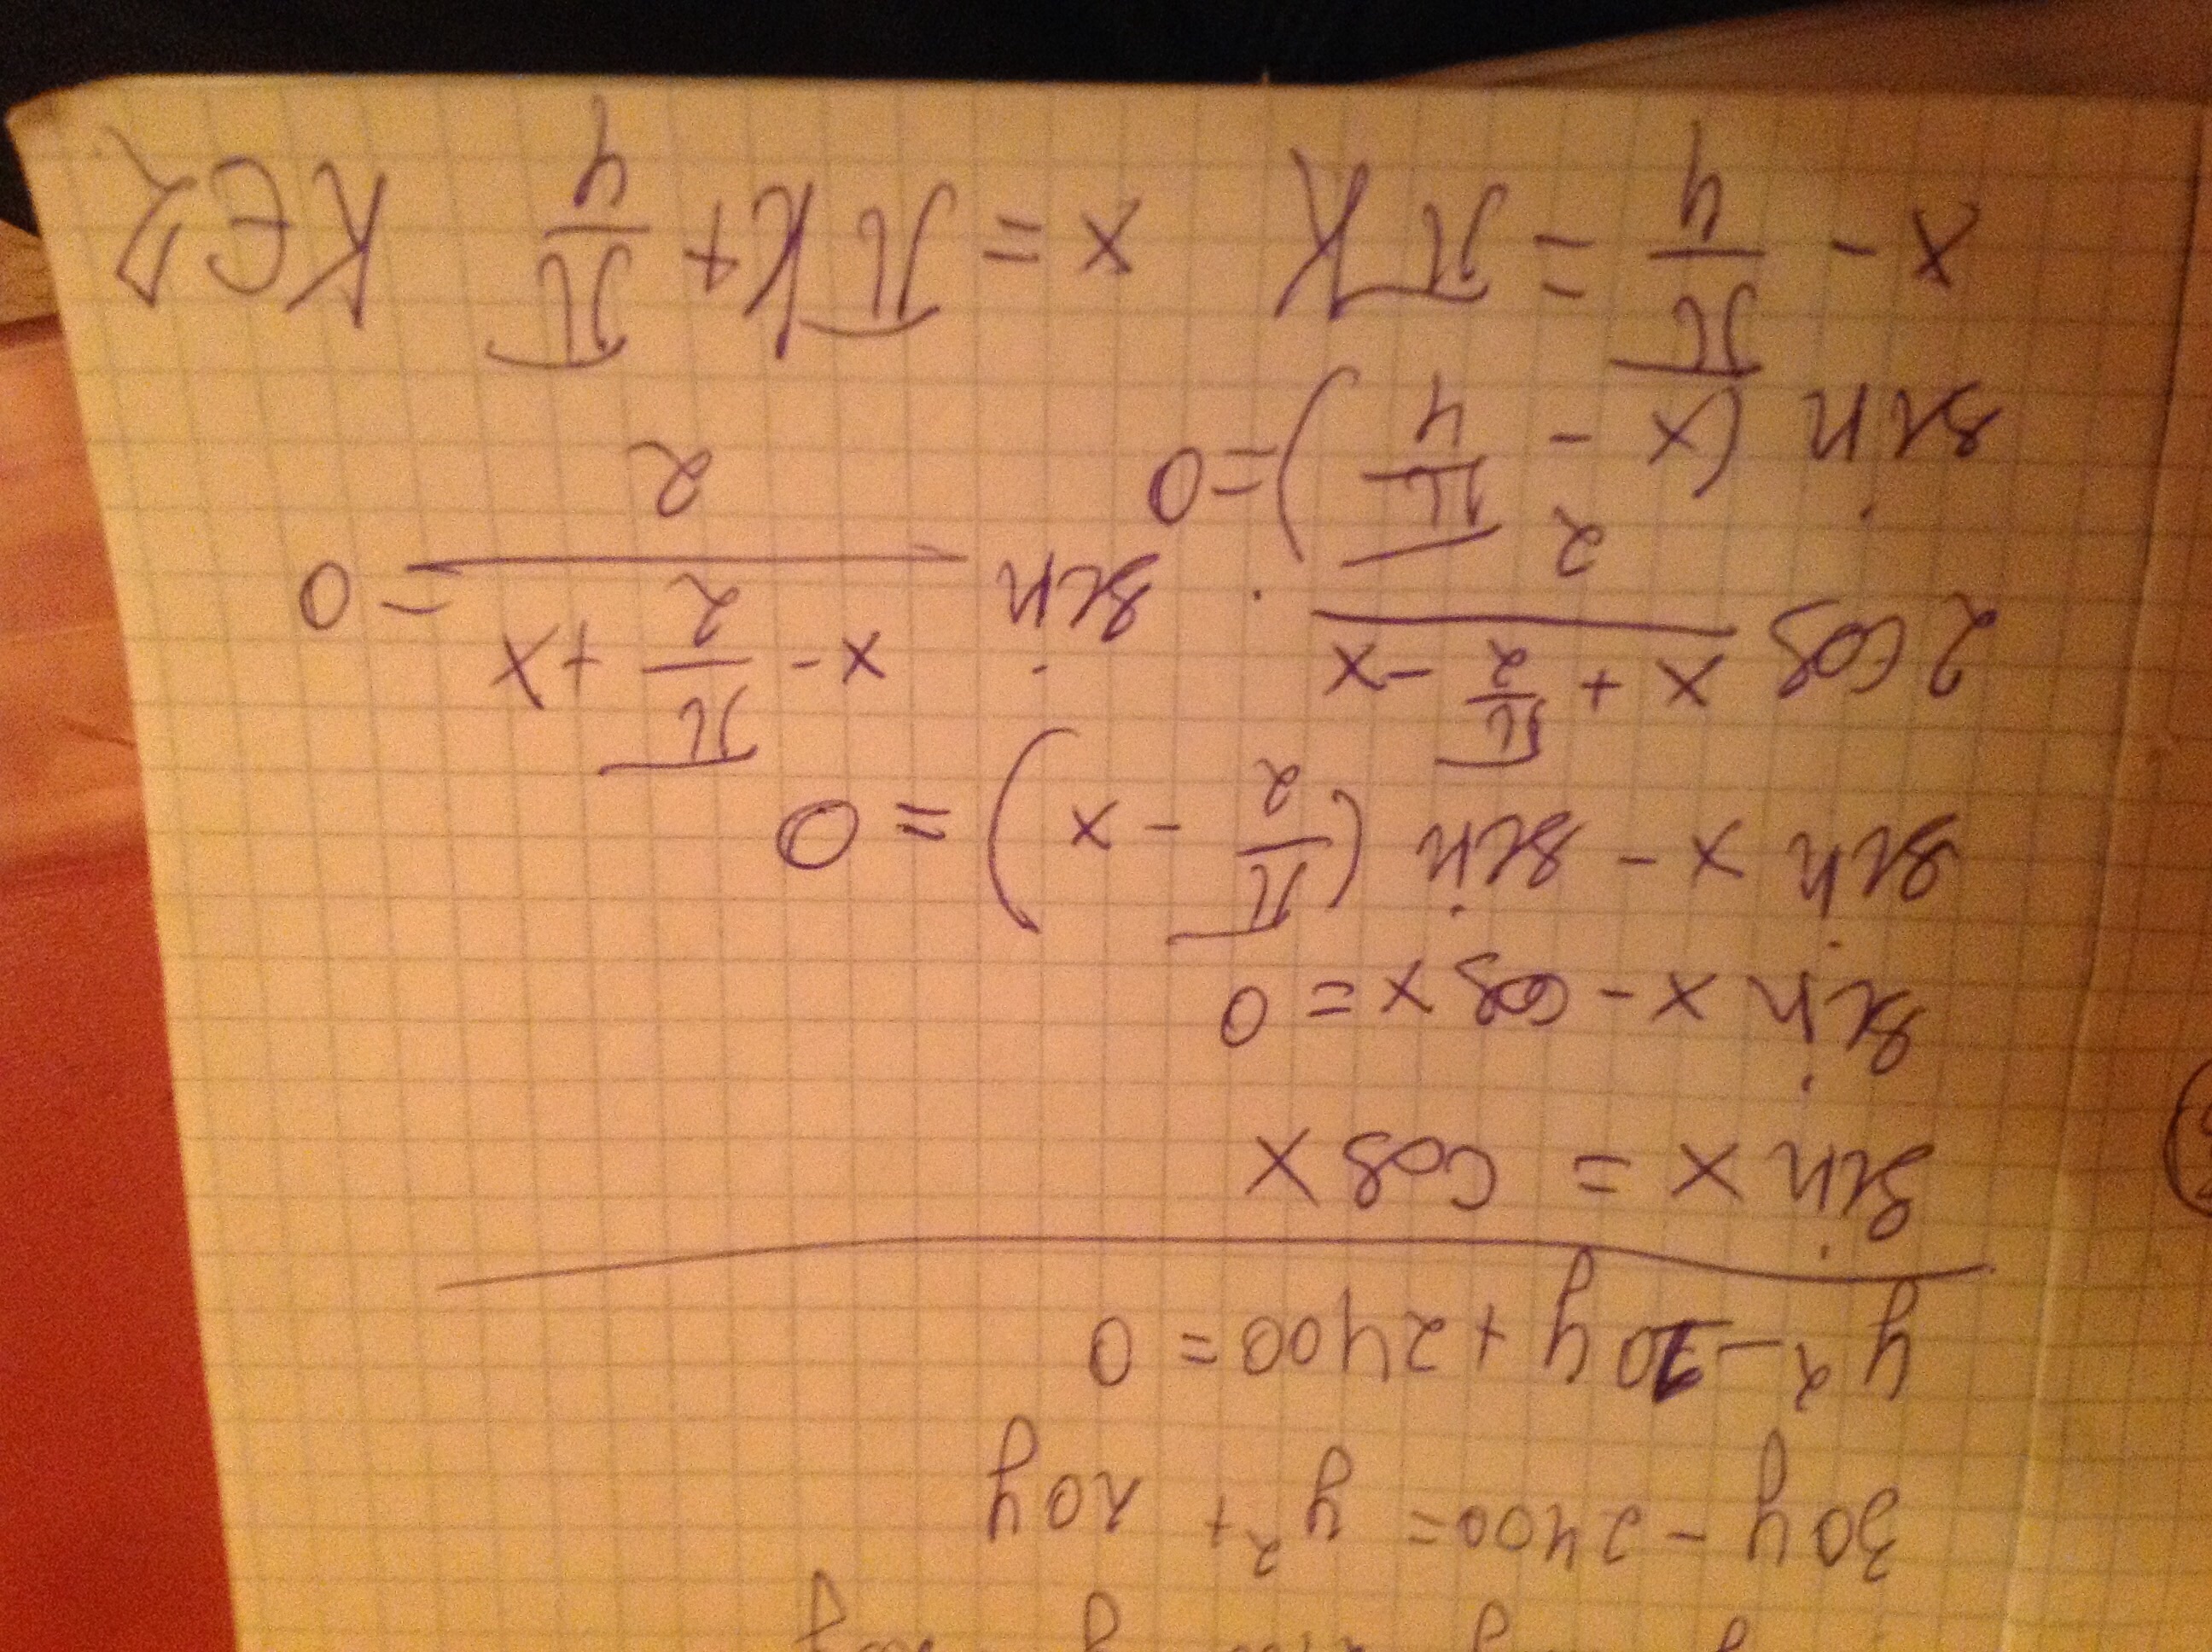 30y - 2400 = y² + 20y
y² - 10y + 2400 = 0
sin x = cos x
sin x - cos x = 0
sin x - sin (π/2 - x) = 0
2 cos (x + π/2 - x)/2 · sin (x - π/2 + x)/2 = 0
sin (x - π/4) = 0
x - π/4 = πk x = πk + π/4 k ∈ Z